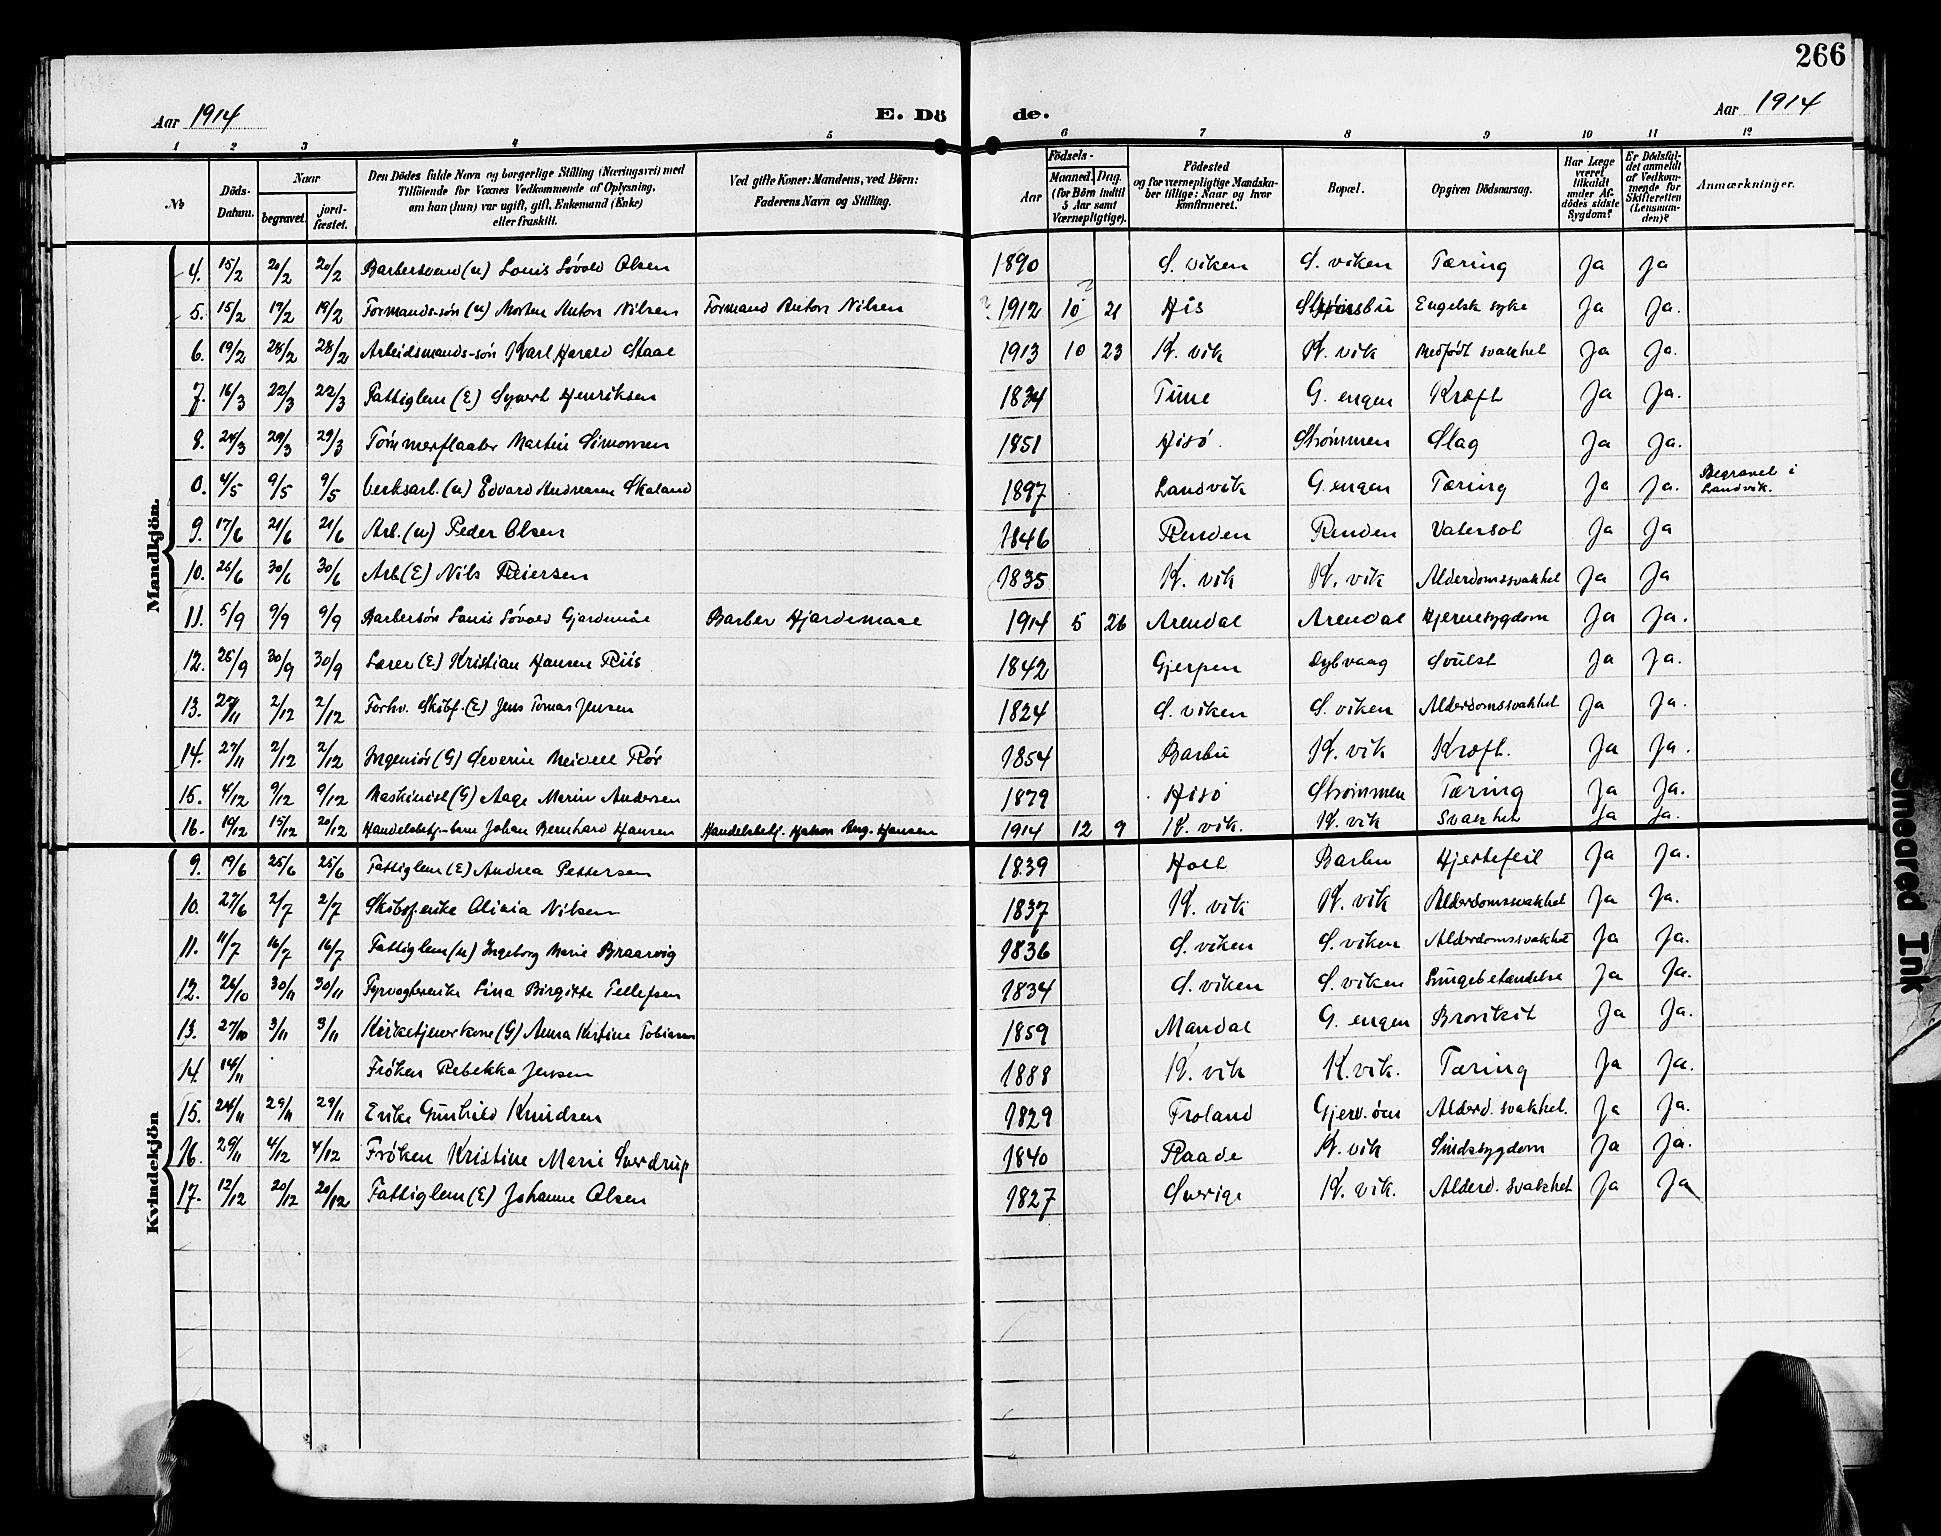 266
Aar 1914 E. Dö de. Aar 1914
1 2 3 4 5 6 7 8 9 10 11 12
No
Döds-Datum.
Naar
begravet.
jord-fæstet.
Den Dödes fulde Navn og borgerlige Stilling (Næringsvei) med
Tilföiende for Voxnes Vedkommende af Oplysning,
om han (hun) var ugift, gift, Enkemand (Enke)
eller fraskilt.
Ved gifte Koner: Mandens, ved Börn:
Faderens Navn og Stilling.
Födsels-
Aar
Maaned. Dag.
(for Börn indtil
5 Aar samt
Værnepligtige).
Födested
og for værnepligtige Mandska-
ber tillige: Naar og hvor
konfirmeret.
Bopæl.
Opgiven Dödsaarsag.
Har Læge
været
tilkaldt
under Af-
dödes sidste
Sygdom?
Er Dödsfal-
det anmeldt
af Vedkom-
mende for
Skifteretten
(Lensman-
den)?
Anmærkninger.
Mandkjön.
4. 15/2 20/2 20/2 Barbersvend (u) Louis Lövold Olsen 1890 S. viken S. viken Tæring Ja Ja
5. 15/2 19/2 19/2 Formands-sön (u) Morten Anton Nilsen Formand Anton Nilsen ? 1912 10 ? 21 His Strömsbu Engelsk syke Ja Ja.
6. 19/2 28/2 28/2 Arbeidsmands-sön Karl Harald Staal 1913 10 23 K. vik K. vik Medfödt svakhet Ja Ja.
7. 16/3 22/3 22/3 Fattiglem (E) Syvert Henriksen 1834 Tune G. engen Kræft Ja Ja.
8. 24/3 29/3 29/3 Tömmerflaater Martin Simonsen 1851 Hisö. Strömmen Slag Ja Ja.
0. 4/5 9/5 9/5 Verksarb. (u) Edvard Andreasen Skaland 1897 Landvik G. engen Tæring Ja Ja. Begravet i
Landvik.
9. 17/6 21/6 21/6 Arb. (u) Peder Olsen 1846 Renden Renden Vatersot Ja Ja
10. 26/6 30/6 30/6 Arb (E) Nils Reiersen 1835 K. vik K. vik Alderdomssvakhet Ja Ja
11. 5/9 9/9 9/9 Barbersön Louis Lövold Gjardemåe Barber Hjardemaal 1914 5 26 Arendal Arendal Hjernesygdom Ja Ja.
12. 25/9 30/9 30/9 Lærer (E) Kristian Hansen Riis 1842 Gjerpen Dybvaag Svulst Ja Ja.
13. 27/11 2/12 2/12 Forhv. Skibsf. (E) Jens Tomas Jensen 1824 S. viken S. viken Alderdomssvakhet Ja Ja.
14. 27/11 2/12 2/12 Ingeniör (G) Severin Meidell Rör 1854 Barbu K. vik Kræft. Ja Ja.
15. 4/12 9/12 9/12 Maskinist (G) Aage Marin Andersen 1879 Hisö Strömmen Tæring Ja Ja.
16. 19/12 15/12 20/12 Handelsbetj.-barn Johan Bernhard Hansen Handelsbetj. Hakon Aug. Hansen 1914 12 9 K. vik. K. vik Svakhet Ja Ja.
Kvindekjön
9. 19/6 25/6 25/6 Fattiglem (E) Andrea Pettersen 1839 Holt Barbu Hjertefeil Ja Ja.
10. 27/6 2/7 2/7 Skibsf.enke Olivia Nilsen 1837 K. vik K. vik Alderdomssvakhet Ja Ja.
11. 11/7 16/7 16/7 Fattiglem (u) Ingeborg Marie Braarvig 1836 S. viken S. viken Alderdomssvakhet Ja Ja.
12. 26/10 30/11 30/11 Fyrvogterenke Lina Birgitte Tellefsen 1834 S. viken S. viken Lungebetændelse Ja Ja.
13. 27/10 3/11 3/11 Kirketjenerkone (G) Anna Kirstine Tobiasen 1859 Mandal G. engen Bronkit Ja Ja.
14. 14/11 Fröken Rebekka Jensen 1888 K. vik K. vik. Tæring Ja Ja.
15. 24/11 29/11 29/11 Enke Gunhild Knudsen 1829 Froland Gjerv.öen Alderd. svakhet. Ja Ja.
16. 29/11 4/12 4/12 Fröken Kristine Marie Sverdrup 1840 Raade K. vik Sindssygdom Ja Ja.
17. 12/12 20/12 20/12 Fattiglem (E) Johanne Olsen 1827 Sverige K. vik. Alderd. svakhet Ja Ja
Smeared Ink